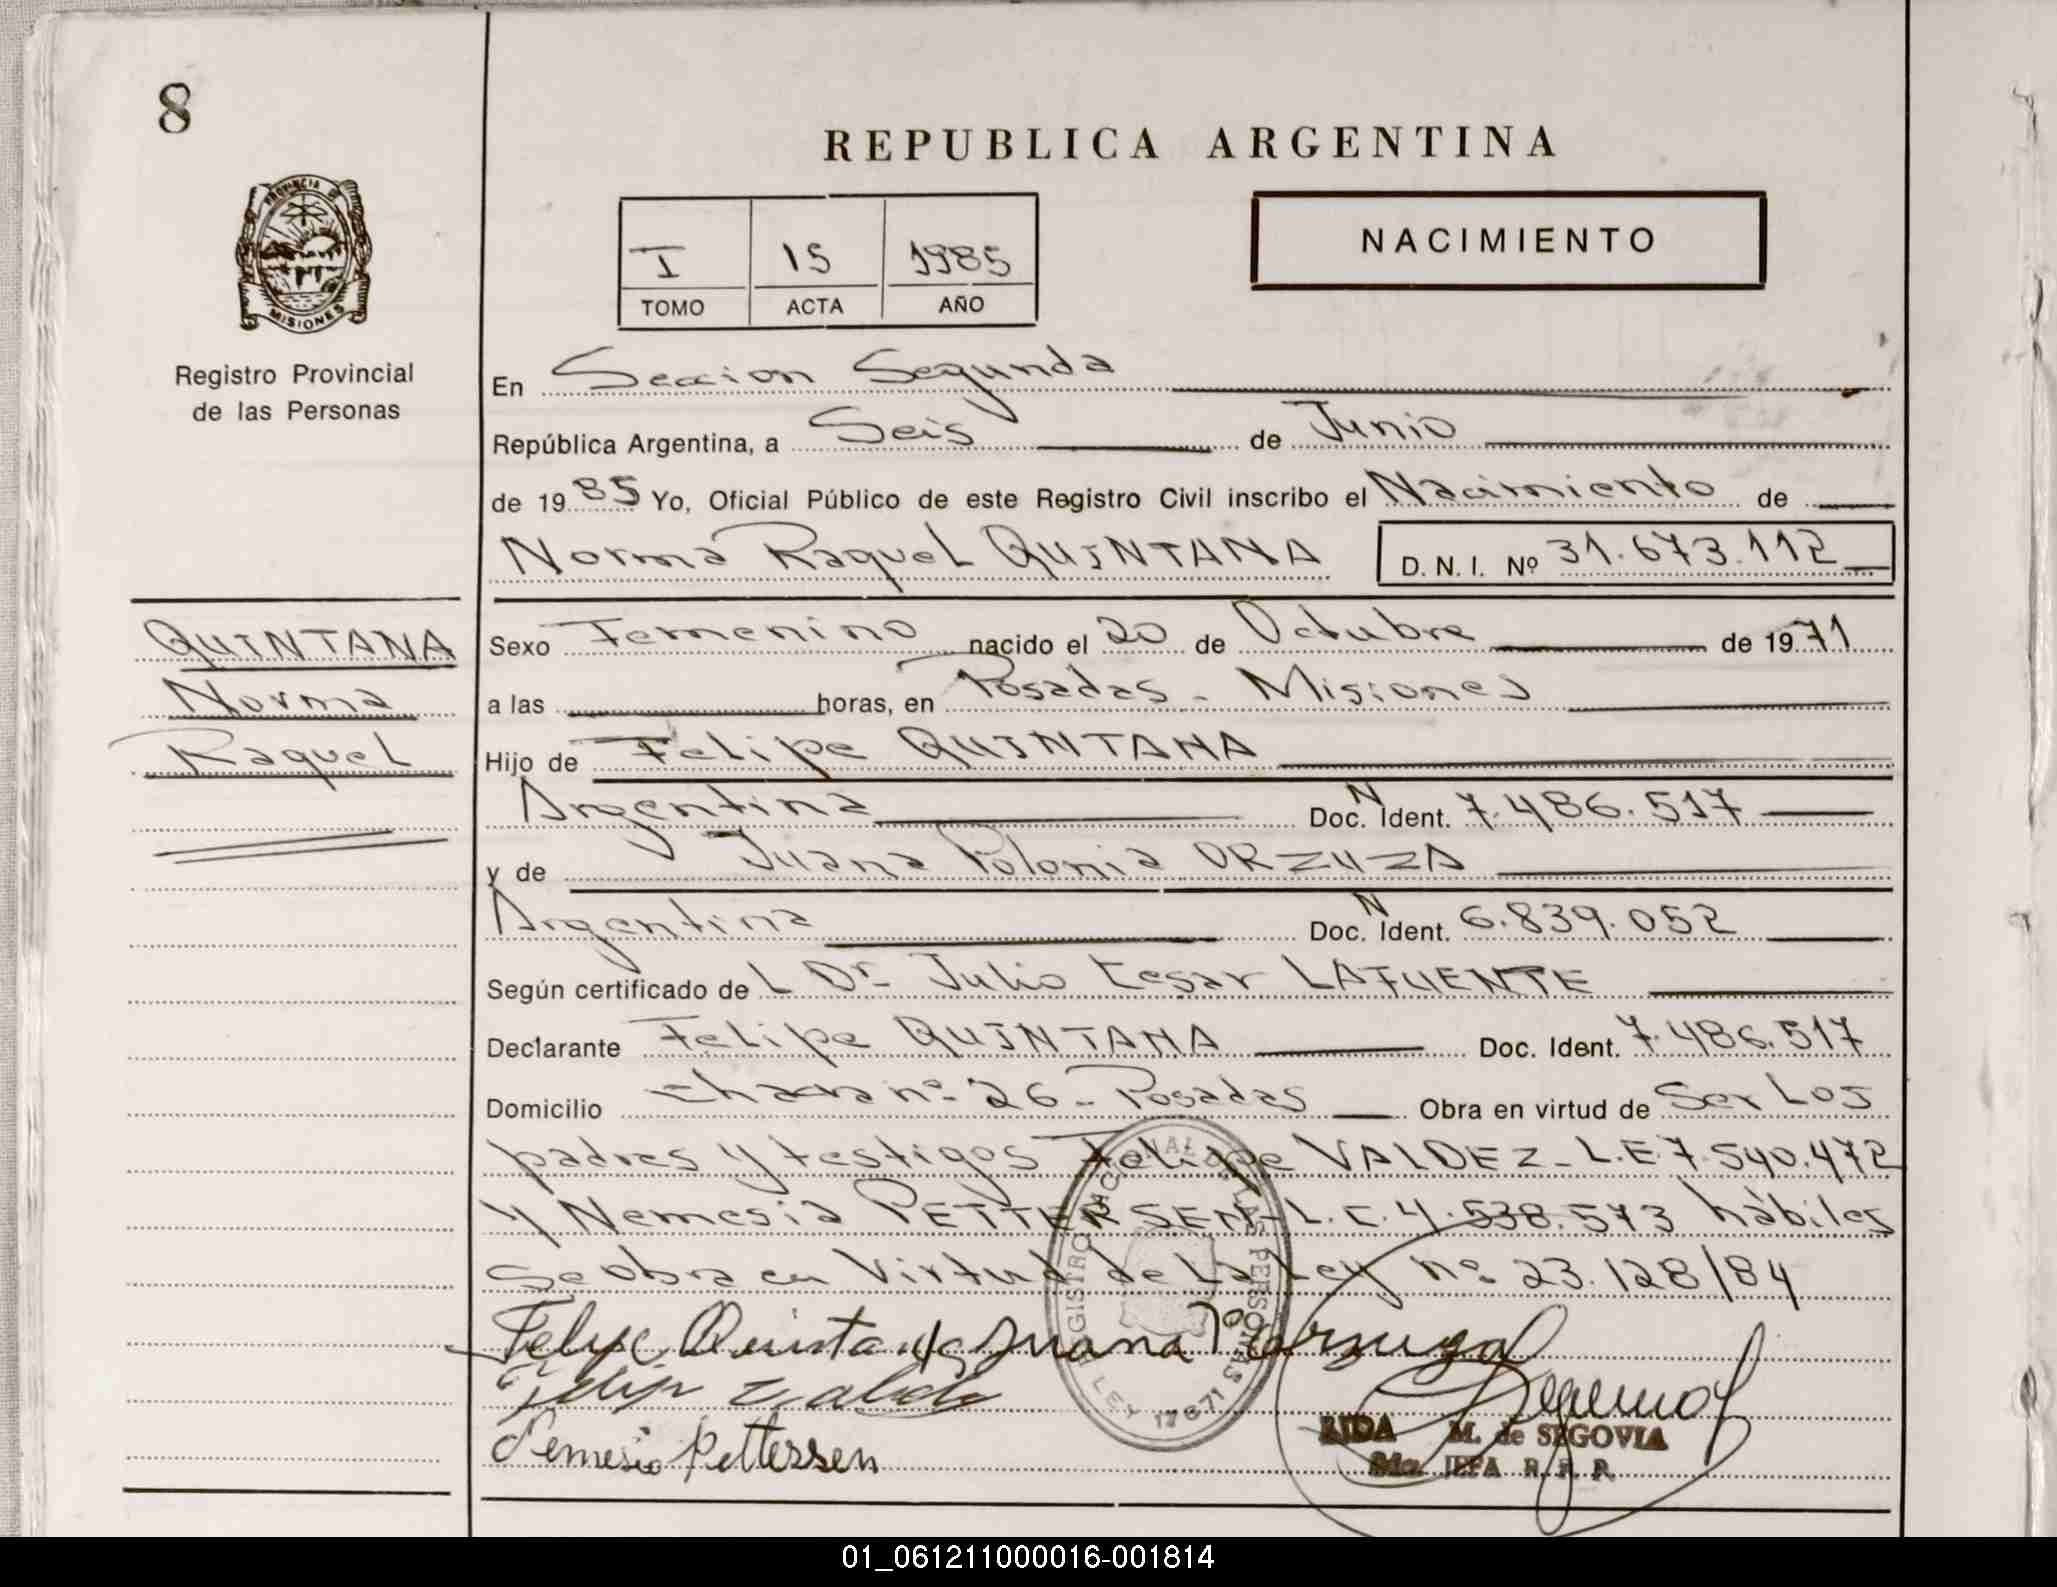 8
REPUBLICA ARGENTINA
PROVINCIA DE
MISIONES
Registro Provincial
de las Personas
I 15 1985
TOMO ACTA AÑO
NACIMIENTO
En Seccion Segunda
República Argentina, a Seis de Junio
de 1985 Yo, Oficial Público de este Registro Civil inscribo el Nacimiento de
Norma Raquel QUINTANA D. N. I. Nº 31.673.112
QUINTANA
Norma
Raquel
Sexo Femenino nacido el 20 de Octubre de 1971
a las horas, en Posadas - Misiones
Hijo de Felipe QUINTANA
Argentina Doc. N Ident. 7.486.517
y de Juana Polonia ORZUZA
Argentina Doc. N Ident. 6.839.052
Según certificado de L Dr. Julio Cesar LAFUENTE
Declarante Felipe QUINTANA Doc. Ident. 7.486.517
Domicilio Chacra nº 26 - Posadas Obra en virtud de Ser Los
padres y testigos Felipe VALDEZ - L.E. 7.540.472
y Nemesia PETTERSEN - L.C. 4.538.573 hábiles
se obra en Virtud de La Ley nº 23.128/84
Felipe Quintana Juana P Orzuza
Nemesia Pettersen
REGISTRO NACIONAL DE LAS PERSONAS
LEY 17671
M. de SEGOVIA
JEFA R. P. P.
01_061211000016-001814